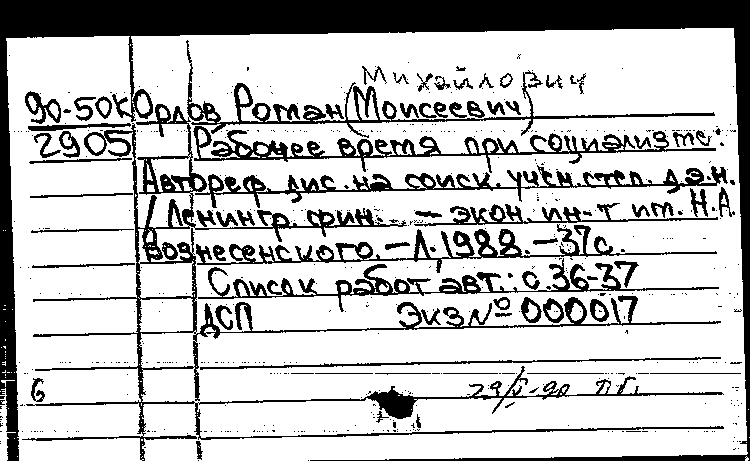 Михайлович
90-50К Орлов Роман (Моисеевич)
2905 Рабочее время при социализме:
Автореф. дис. на соиск. учен. степ. д.э.н.
/ Ленингр. фин. - экон. ин-т им. Н.А.
Вознесенского. - Л. 1988. - 37с.
Список работ авт.: с. 36-37
ДСП Экз № 000017
6 29/V-90 пг.